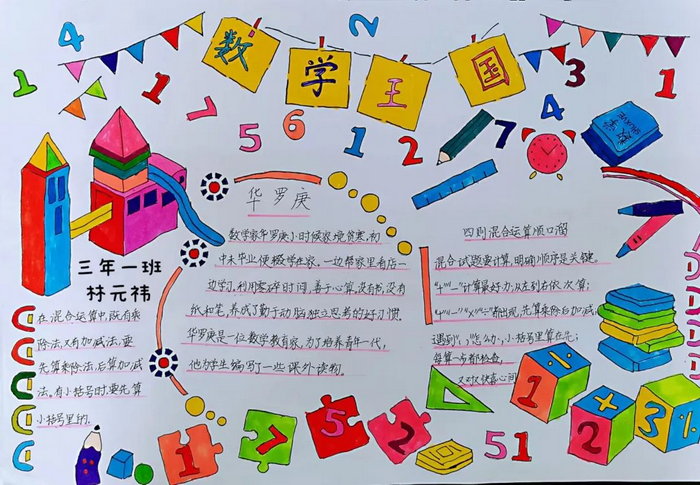 数学王国
数学
三年一班
林元祎
在混合运算中,既有乘
除法,又有加减法,要
先算乘除法,后算加减
法。有小括号时,要先算
小括号里的.
华罗庚
数学家华罗庚小时候家境贫寒,初
中未毕业便辍学在家,一边帮家里看店一
边学习,利用零碎时间,善于心算,没有书,没有
纸和笔,养成了勤于动脑独立思考的好习惯.
华罗庚是一位数学教育家,为了培养青年一代,
他为学生编写了一些课外读物.
四则混合运算顺口溜
混合试题要计算,明确顺序是关键。
"+""-"计算最好办,从左到右依次算;
"+""-""×""÷"都出现,先算乘除后加减;
遇到"()"怎么办,小括号里算在先;
每算一步都检查,
又对又快喜心间
4
1
1
7
5
6
2
1
2
7
4
3
1
1
7
5
2
51
1
÷
×
2
3
%